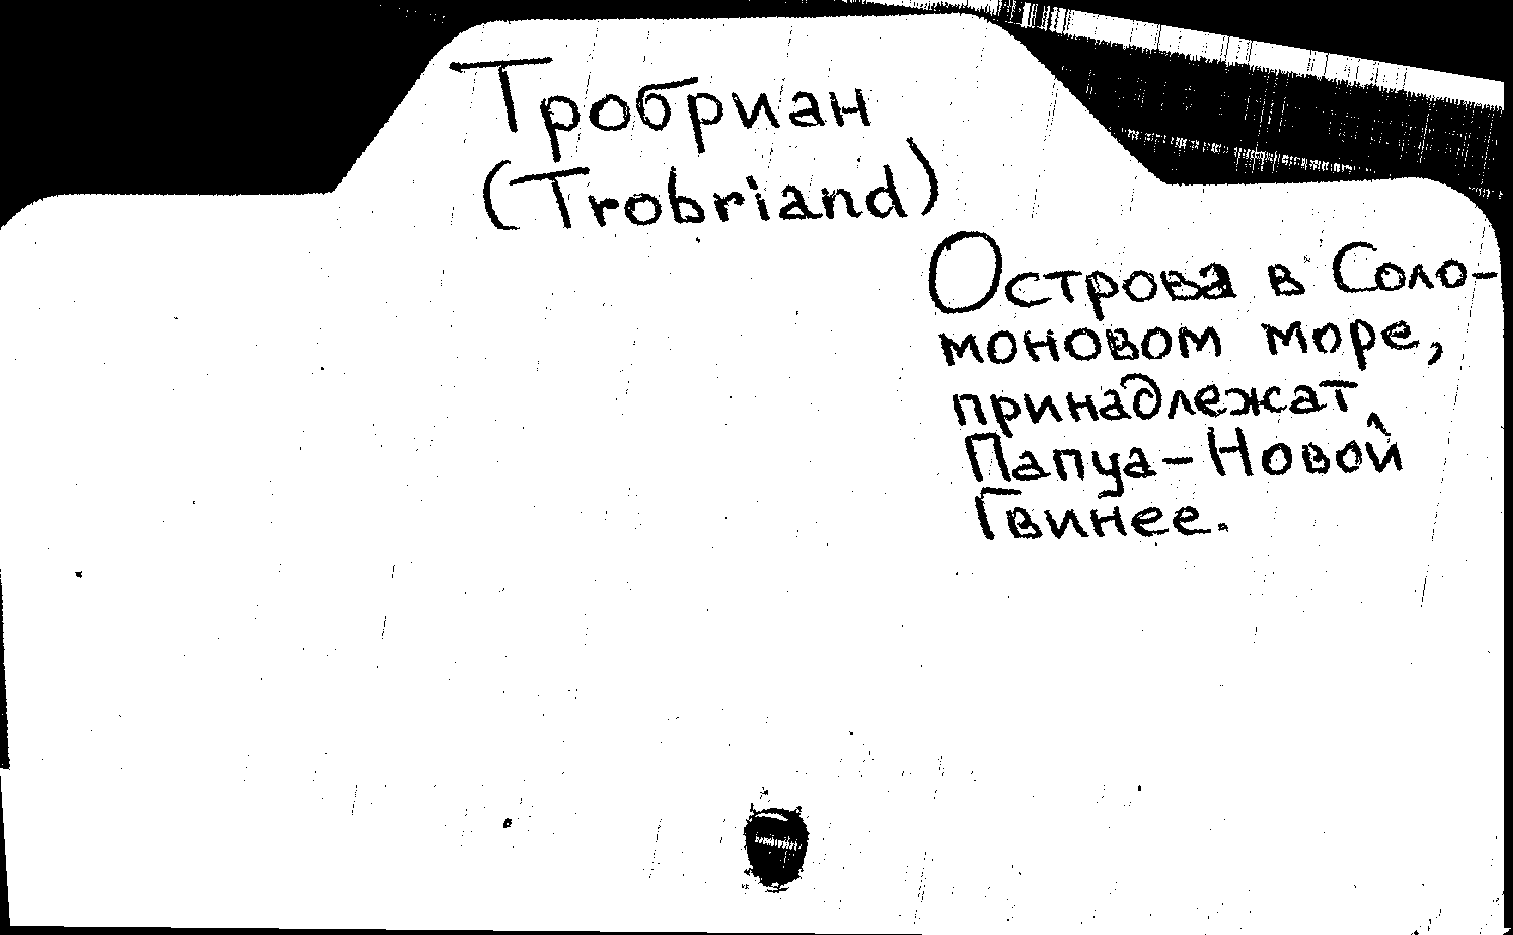 Тробриан
(Trobriand)
Острова в Соло-
моновом море,
принадлежат
Папуа-Новой
Гвинее.